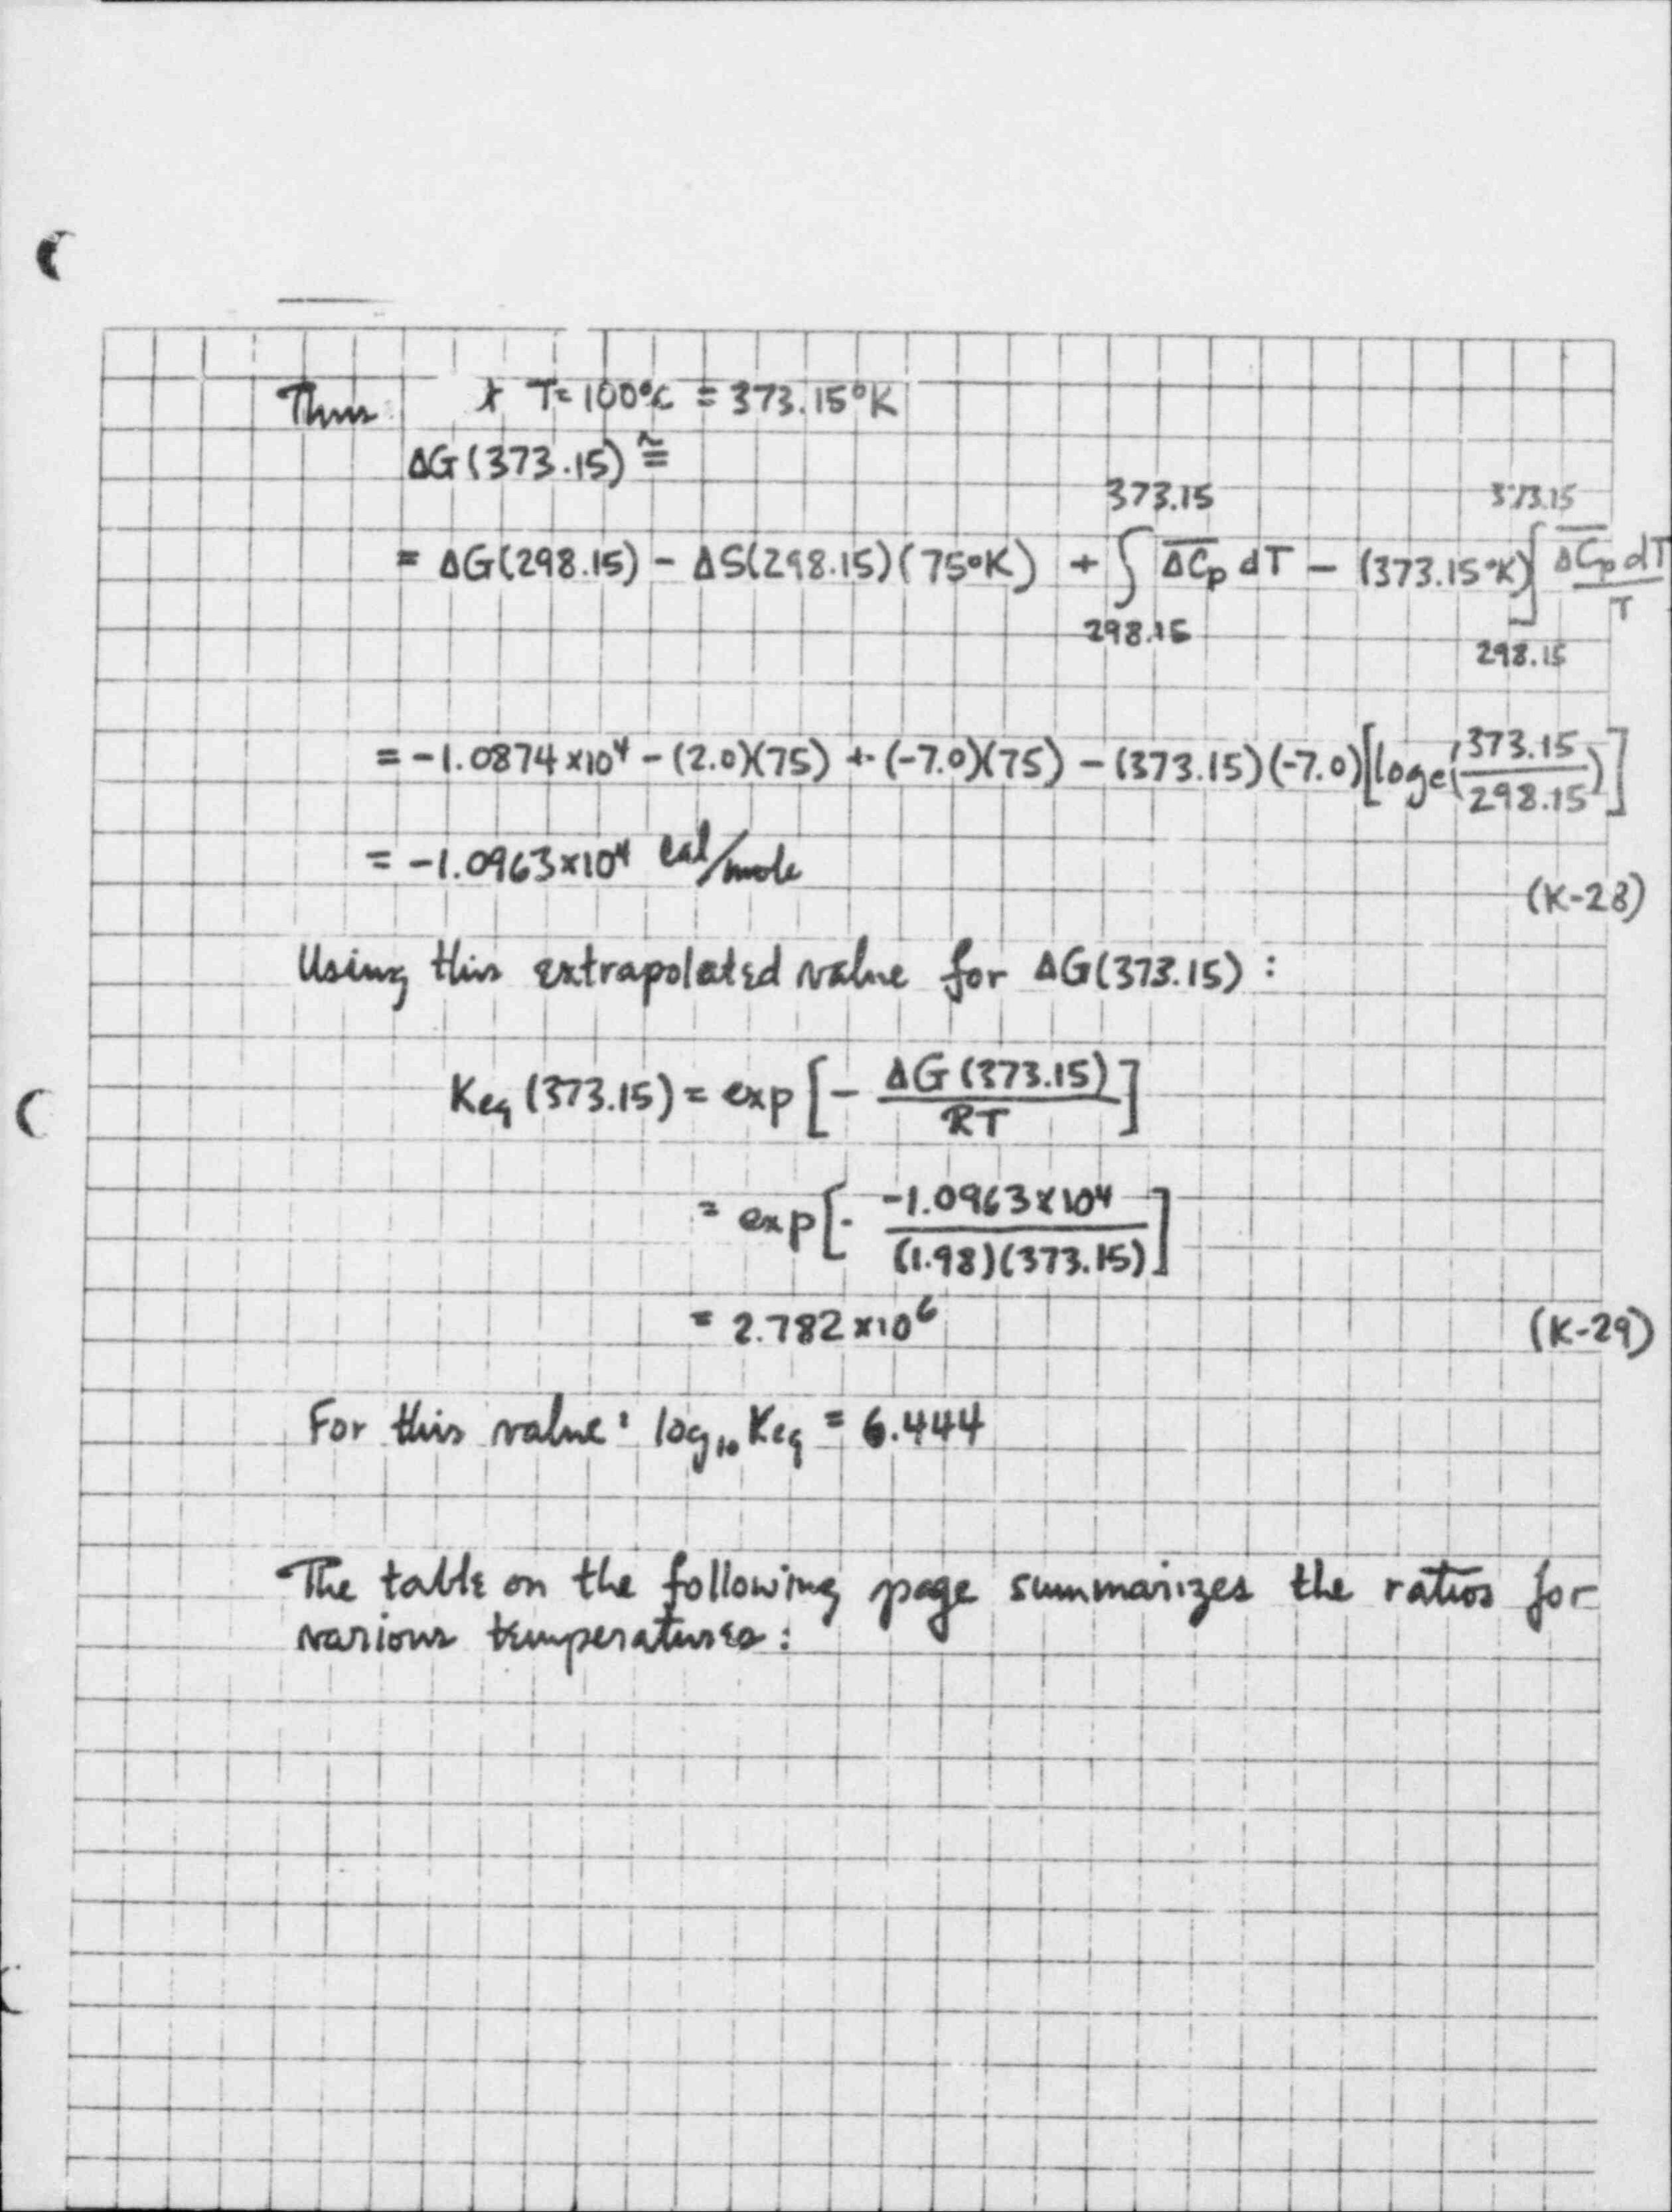 Thus t T= 100°C = 373.15°K
ΔG(373.15) ≅
= ΔG(298.15) - ΔS(298.15)(75°K) + ∫_{298.15}^{373.15} \overline{ΔCp} dT - (373.15°K) ∫_{298.15}^{373.15} \overline{ΔCp} dT / T
= -1.0874 x10⁴ - (2.0)(75) + (-7.0)(75) - (373.15)(-7.0)[loge(373.15/298.15)]
= -1.0963x10⁴ cal/mole
(K-28)
Using this extrapolated value for ΔG(373.15) :
Keq (373.15) = exp [- ΔG(373.15)/RT]
= exp[- -1.0963x10⁴/(1.98)(373.15)]
= 2.782 x10⁶ (K-29)
For this value: log₁₀ Keq = 6.444
The table on the following page summarizes the ratios for
various temperatures: